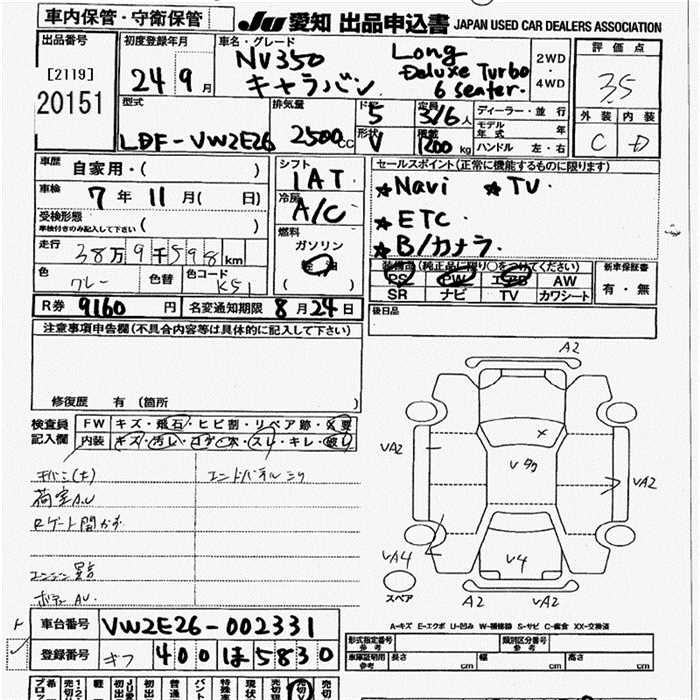 車内保管・守衛保管
JU 愛知 出品申込書 JAPAN USED CAR DEALERS ASSOCIATION
出品番号
[2119]
20151
初度登録年月
24年9月
車名・グレード
NV350
キャラバン
Long
Deluxe Turbo
6 seater.
2WD
・
4WD
評価点
3.5
外装 内装
C D
型式
LDF-VW2E26
排気量
2500cc
ドア
5
形状
V
定員
3/6人
積載
1200kg
ディーラー・並行
モデル年式 年
ハンドル 左・右
車歴
自家用・( )
車検
7年11月( 日)
受検形態
車検付きのみ記入して下さい ( )
走行
38万9千598km
色
グレー
色替
色コード
K51
シフト
IAT
冷房
A/C
燃料
ガソリン
軽油
セールスポイント(正常に機能するものに限ります)
★Navi ★TV.
★ETC
★B/カメラ.
装備品(純正品に限り○をつけてください)
PS PW エアB AW
SR ナビ TV カワシート
新車保証書
有・無
R券 9160円 名変通知期限 8月24日
後日品
注意事項申告欄(不具合内容等は具体的に記入して下さい)
修復歴 有(箇所 )
検査員
記入欄
FW キズ・飛石・ヒビ割・リペア跡・X要
内装 キズ・汚レ・コゲ・穴・スレ・キレ・破レ
荷室AU
エンジン異音
ボデーAU
A2
VA2
VA2
VA4
V4
A2
VA2
スペア
A-キズ E-エクボ U-凹み W-補修跡 S-サビ C-腐食 XX-交換済
車台番号 VW2E26-002331
登録番号 ギフ 400 ほ 5830
形式指定番号
参考
類別区分番号
参考
車庫証明用
参考
長さ cm 幅 cm 高さ cm